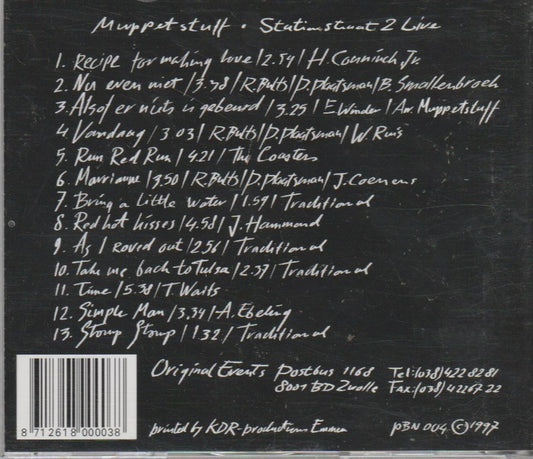 Muppetstuff • Stationstraat 2 Live
1. Recipe for making love / 2.54 / H. Connick Jr.
2. Nu even niet / 3.48 / R. Butts / D. Plaatsman / B. Smallenbroek
3. Alsof er niets is gebeurd / 3.25 / E. Winder / Arr. Muppetstuff
4 Vandaag / 3 03 / R. Butts / D. Plaatsman / W. Ruis
5. Run Red Run / 4.21 / The Coasters
6. Marrianne / 3.50 / R. Butts / D. Plaatsman / J. Coenens
7. Bring a little Water / 1.59 / Traditional
8. Red hot kisses / 4.58 / J. Hammond
9. As I Roved out / 2.56 / Traditional
10. Take me back to Tulsa / 2.37 / Traditional
11. Time / 5.38 / T. Waits
12. Simple Man / 3.34 / A. Ebeling
13. Stomp Stomp / 1.32 / Traditional
Original Events Postbus 1168 Tel: (038) 422 82 81
8001 BD Zwolle Fax: (038) 42267 22
8 712618 000038
printed by KDR-productions Emmen PBN 004 © 1997